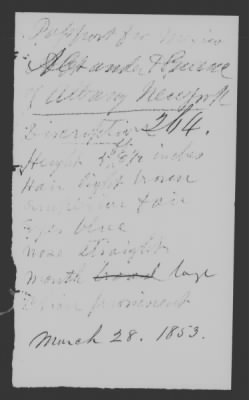 Passport for Mexico
Alexander
of Albany Newyork
Discription 264.
Height inches
Hair light brown
complexion fair
Eyes blue
nose straight
mouth broad large
prominent
March 28. 1853.